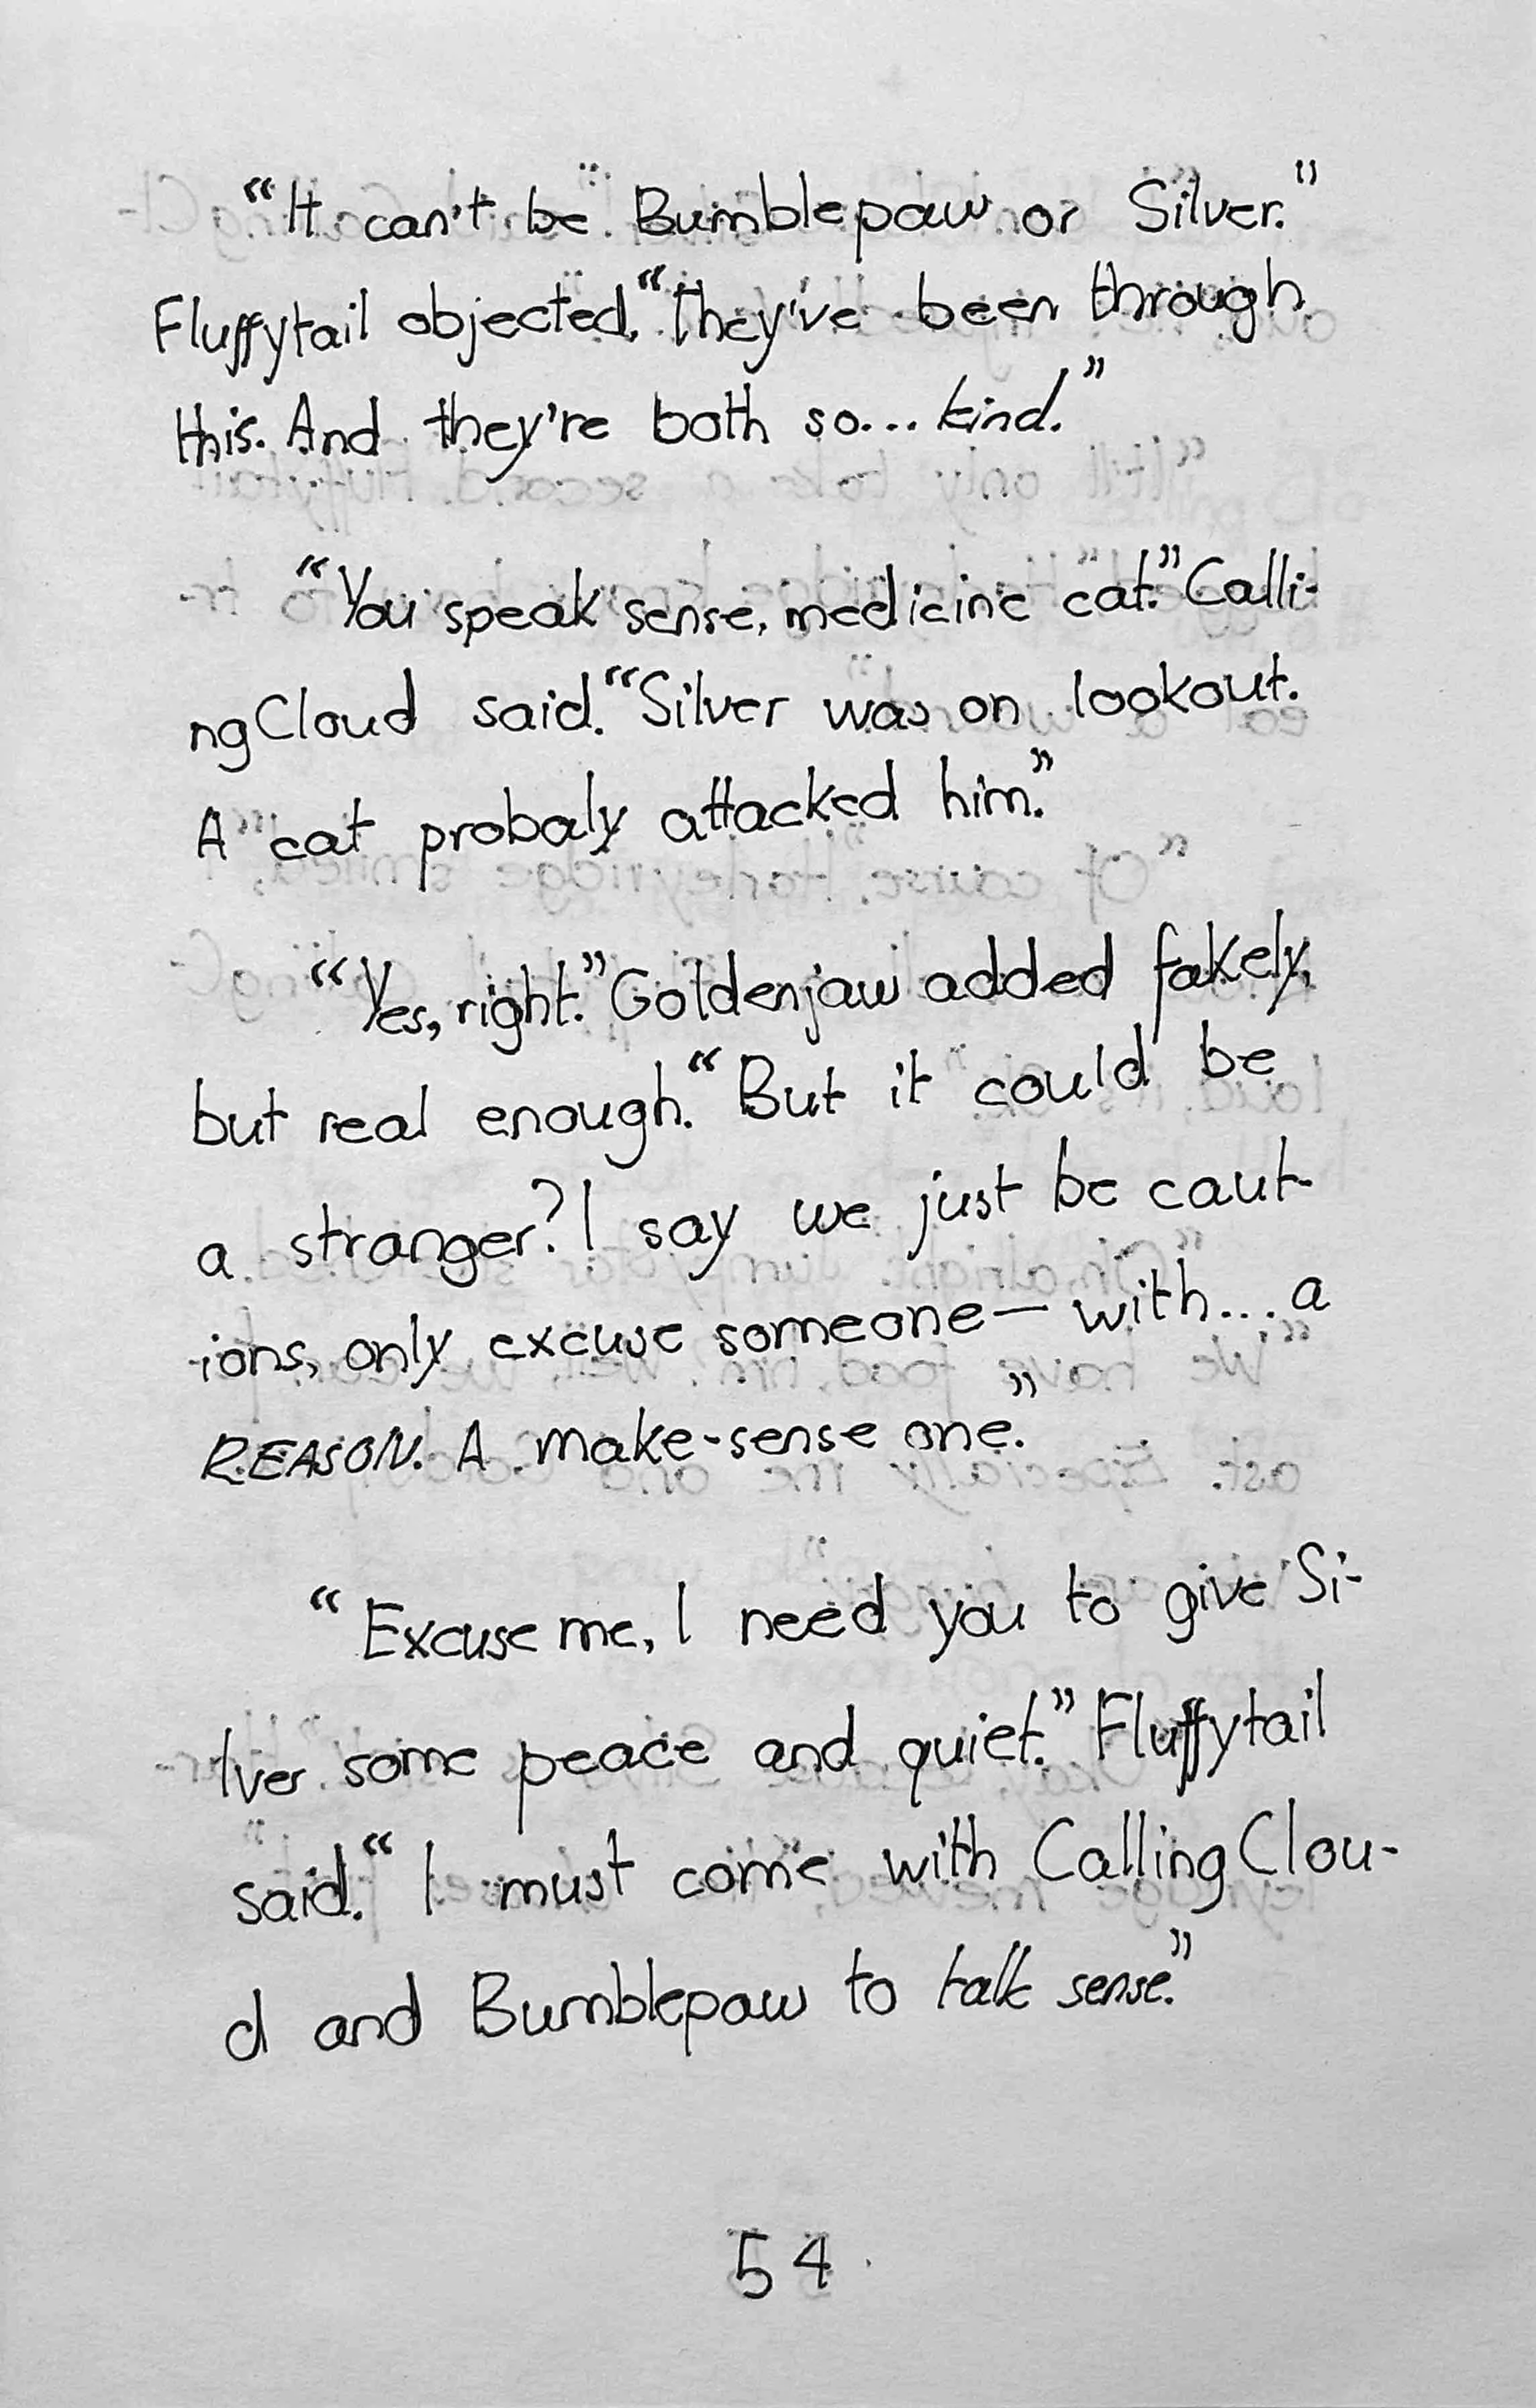 “It can't be Bumblepaw or Silver.”
Fluffytail objected. “They've been through
this. And they're both so... kind.”
“You speak sense, medicine cat.” Calli-
ng Cloud said. “Silver was on lookout.
A cat probaly attacked him.”
“Yes, right.” Goldenjaw added fakely,
but real enough. “But it could be
a stranger? I say we just be caut-
ions, only excuse someone— with... a
REASON. A make-sense one.”
“Excuse me, I need you to give Si-
lver some peace and quiet.” Fluffytail
said. “I must come with Calling Clou-
d and Bumblepaw to talk sense.”
54